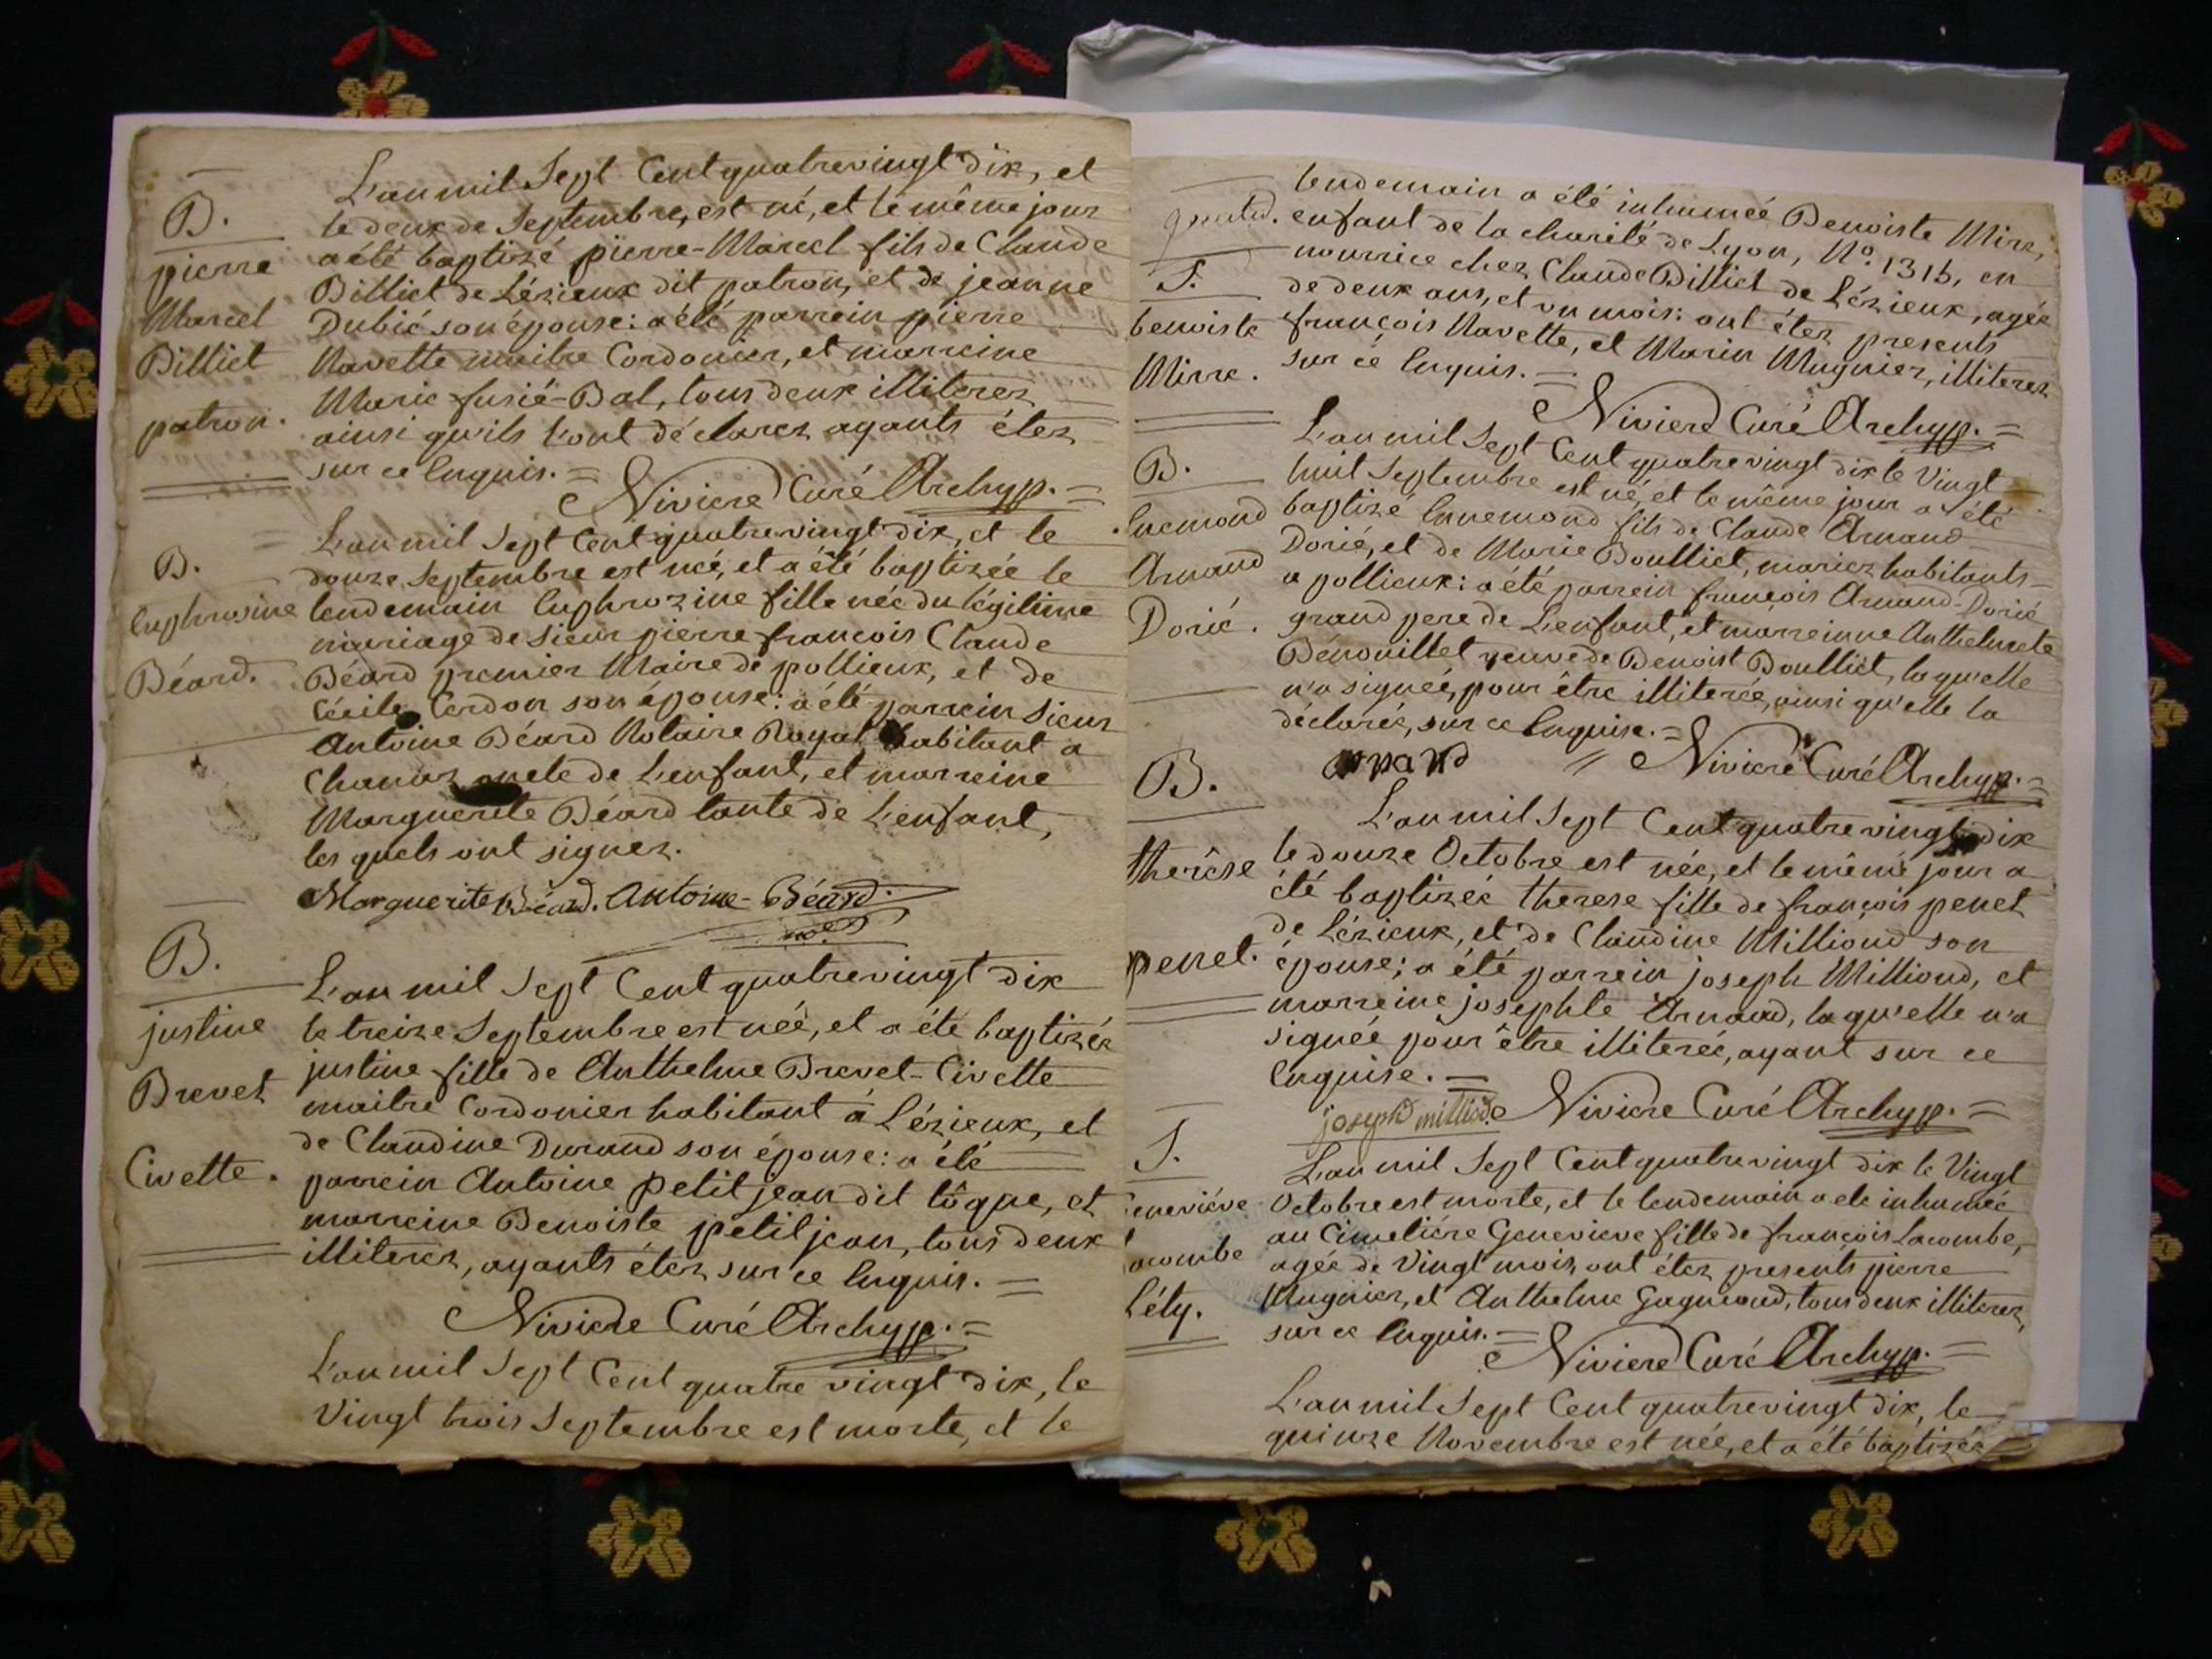 B.
pierre
Marcel
Billiet
patron.
L'an mil Sept Cent quatrevingt dix, et
le deux de Septembre, est né, et le même jour
a été baptizé pierre-Marcel fils de Claude
Billiet de Lézieux dit patron, et de jeanne
Dubié son épouse: a été parrein pierre
Navette maitre Cordonier, et marreine
Marie fusié-Bal, tous deux illiterez
ainsi qu'ils l'ont déclarez ayants étez
sur ce Enquis. =
Niviere Curé Archyp. =
B.
Euphrosine
Béard.
L'an mil Sept Cent quatrevingt dix, et le
douze Septembre est née, et a été baptizée le
lendemain Euphrozine fille née du légitime
mariage de sieur pierre françois Claude
Béard premier Maire de pollieux, et de
Cécile Cerdon son épouse: a été parrein sieur
Antoine Béard Notaire Royal habitant a
Chanaz oncle de L'enfant, et marreine
Marguerite Béard tante de L'enfant,
les quels ont signez.
Marguerite Béard. Antoine-Béard.
B.
justine
Brevet
Civette.
L'an mil Sept Cent quatrevingt dix
le treize Septembre est née, et a été baptizée
justine fille de Anthelme Brevet-Civette
maitre Cordonier habitant à Lézieux, et
de Claudine Durand son épouse: a été
parrein Antoine petit jean dit tôque, et
marreine Benoiste petit jean, tous deux
illiterez, ayants étez sur ce Enquis. =
Niviere Curé Archyp. =
L'an mil Sept Cent quatre vingt dix, le
Vingt trois Septembre est morte, et le
S.
benoiste
Mirre.
lendemain a été inhumée Benoiste Mire,
enfant de la charité de Lyon, No. 1315, en
nourrice chez Claude Billiet de Lézieux, agée
de deux ans, et un mois: ont étez presents
françois Navette, et Marin Mugnier, illiterez
sur ce Enquis. =
Niviere Curé Archyp. =
B.
Enemond
Arnaud
Dorié.
L'an mil Sept Cent quatrevingt dix le Vingt
huit Septembre est né, et le même jour a été
baptizé Ennemond fils de Claude Arnaud
Dorié, et de Marie Doulliet, mariez habitants
a pollieux: a été parrein françois Arnaud-Dorié
grand pere de L'enfant, et marreinne Anthelmete
Bénouillet veuve de Benoist Doulliet, laqu'elle
n'a signée, pour être illiterée, ainsi qu'elle la
déclarée, sur ce Enquise. =
Niviere Curé Archyp. =
B.
therèse
penet.
L'an mil Sept Cent quatrevingt dix
le douze Octobre est née, et le même jour a
été baptizée therese fille de françois penet
de Lézieux, et de Claudine Milliond son
épouse; a été parrein joseph Milliond, et
marreine josephte Arnaud, laqu'elle n'a
signée pour être illiterée, ayant sur ce
Enquise. =
joseph milliod
Niviere Curé Archyp. =
S.
enevieve
acombe
Léty.
L'an mil Sept Cent quatrevingt dix le Vingt
Octobre est morte, et le lendemain a ete inhumée
au Cimetiére Genevieve fille de françois Lacombe,
agée de Vingt mois ont étez presents pierre
Mugnier, et Anthelme Gagniond, tous deux illiterez,
sur ce Enquis. =
Niviere Curé Archyp. =
L'an mil Sept Cent quatrevingt dix, le
quinze Novembre est née, et a été baptizée